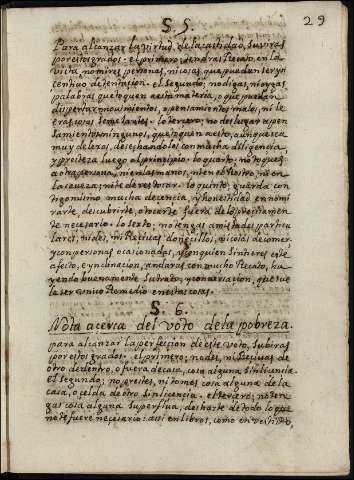 29
§. 5.
Para alcanzar la virtud de la castidad, subiras
por estos grados: el primero, tendras Recato, en la
vista no mires personas, ni cosas, que puedan servir
te en tentacion. el segundo: no digas, ni oygas
palabras que toquen en esta materia, o que puedan
dispertar movimientos, o pensamientos malos, ni le
eras cosas semejantes. lo tercero: no des lugar a pen
samiento ninguno, que toquen a esto, aunque sea
muy de lexos, desechandolos con mucha diligencia,
y presteza luego al principio. lo quarto: no toques
a otra persona, ni en las manos, ni en el rostro, ni en
la caveza; ni te dexes tocar. lo quinto: guarda con
tigo mismo mucha decencia, y honestidad en no mi
rarte, descubrirte, o tocarte fuera de lo precisamen
te necesario. lo sexto: no tengas amistades particu
lares, ni des, ni Recivas donecillos, ni cosas de comer
y con personas ocasionadas, y con quien sintieres este
afecto, e ynclinacion, andaras con mucho Recato, hu
yendo buenamente su trato, y comunicacion, que fue
la ser unico Remedio en estas cosas.
§. 6.
Nota acerca del voto de la pobreza.
para alcanzar la perfeccion de este voto, subiras
por estos grados. el primero; no des, ni Recivas de
otro de dentro, o fuera de casa, cosa alguna sin licencia.
el segundo; no prestes, ni tomes cosa alguna de la
casa, o celda de otro sin licencia. el tercero; no ten
gas cosa alguna superflua, desharte de todo lo que
no te fuere necesario: assi en libros, como en vestido,